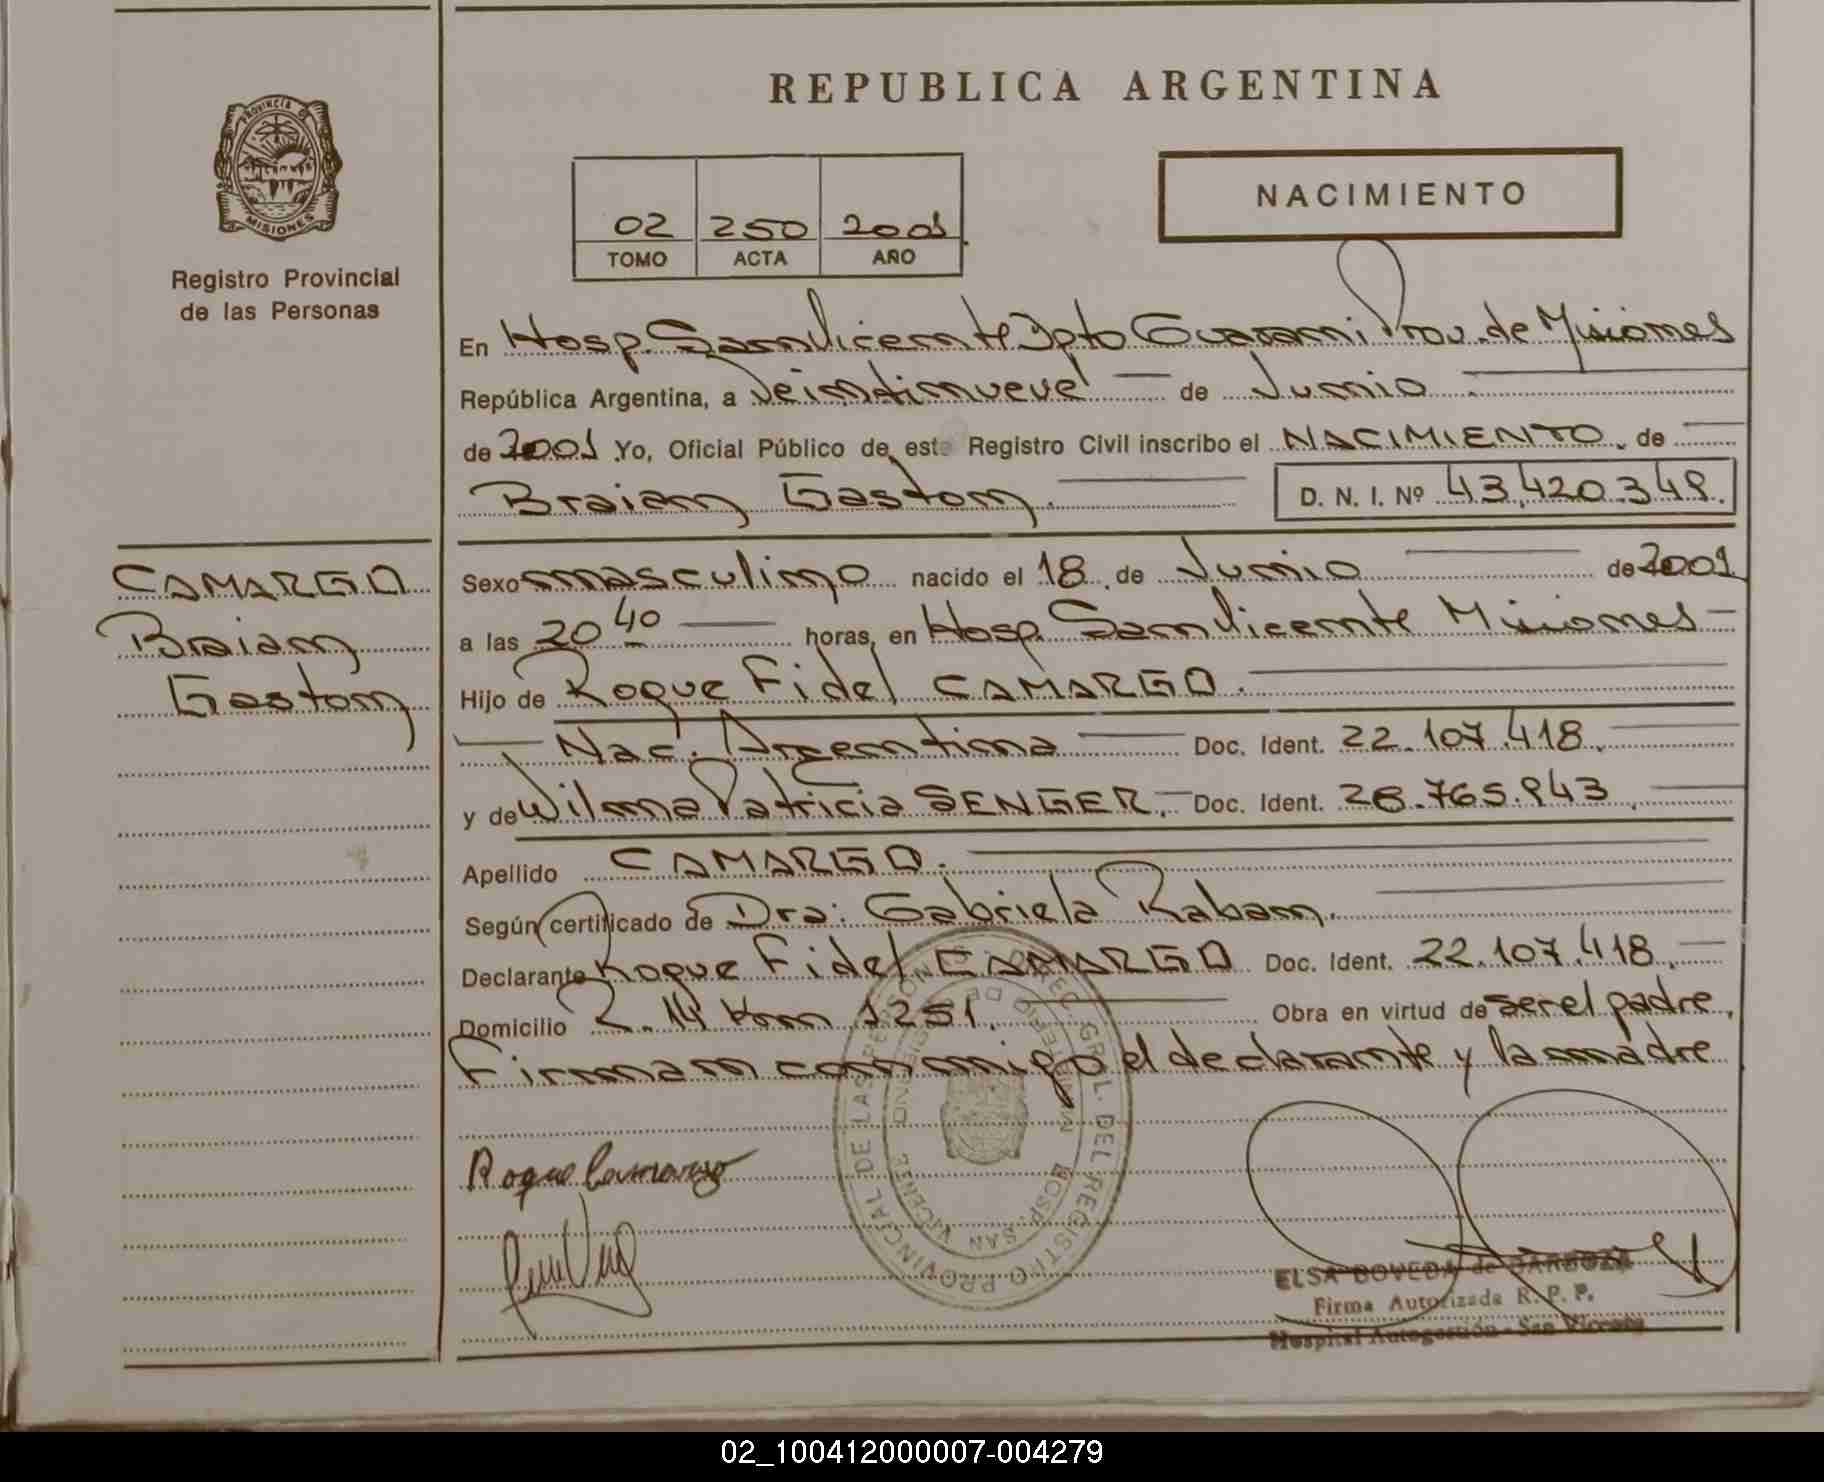 REPUBLICA ARGENTINA
PROVINCIA DE
MISIONES
Registro Provincial
de las Personas
02 250 2001
TOMO ACTA AÑO
NACIMIENTO
En Hosp. San Vicente Dpto Guarani Prov. de Misiones
República Argentina, a Veintinueve de Junio
de 2001 Yo, Oficial Público de este Registro Civil inscribo el NACIMIENTO de
Braian Gaston. D. N. I. Nº 43.420.348.
CAMARGO
Braian
Gaston
Sexo masculino nacido el 18 de Junio de 2001
a las 20 40 horas, en Hosp. San Vicente Misiones
Hijo de Roque Fidel CAMARGO.
Nac. Argentina Doc. Ident. 22.107.418.
y de Wilma Patricia SENGER. Doc. Ident. 28.765.943.
Apellido CAMARGO.
Según certificado de Dra: Gabriela Raban.
Declarante Roque Fidel CAMARGO Doc. Ident. 22.107.418.
Domicilio R. 14 Km 1251. Obra en virtud de ser el padre.
Firman conmigo el declarante y la madre
Roque Camargo
ELSA BOVEDA de BARBOZA
Firma Autorizada R. P. P.
Hospital Autogestión - San Vicente
GRAL. DEL REGISTRO PROVINCIAL DE LAS PERSONAS
MINISTERIO DE
HOSP. SAN VICENTE MISIONES
02_100412000007-004279